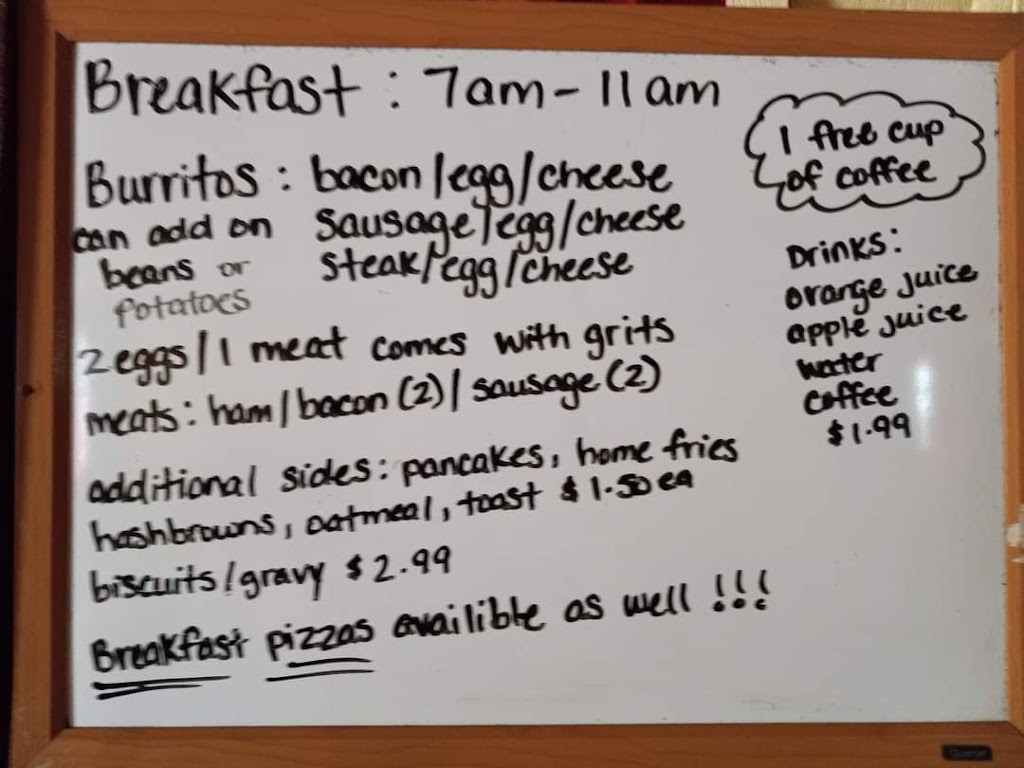 Breakfast : 7am - 11am
1 free cup
of coffee
Burritos : bacon/egg/cheese
can add on sausage/egg/cheese
beans or steak/egg/cheese
potatoes
2 eggs/1 meat comes with grits
meats: ham/bacon (2)/sausage (2)
additional sides: pancakes, home fries
hashbrowns, oatmeal, toast $1.50 ea
biscuits/gravy $2.99
Breakfast pizzas availible as well !!!
Drinks:
orange juice
apple juice
water
coffee
$1.99
Quartet